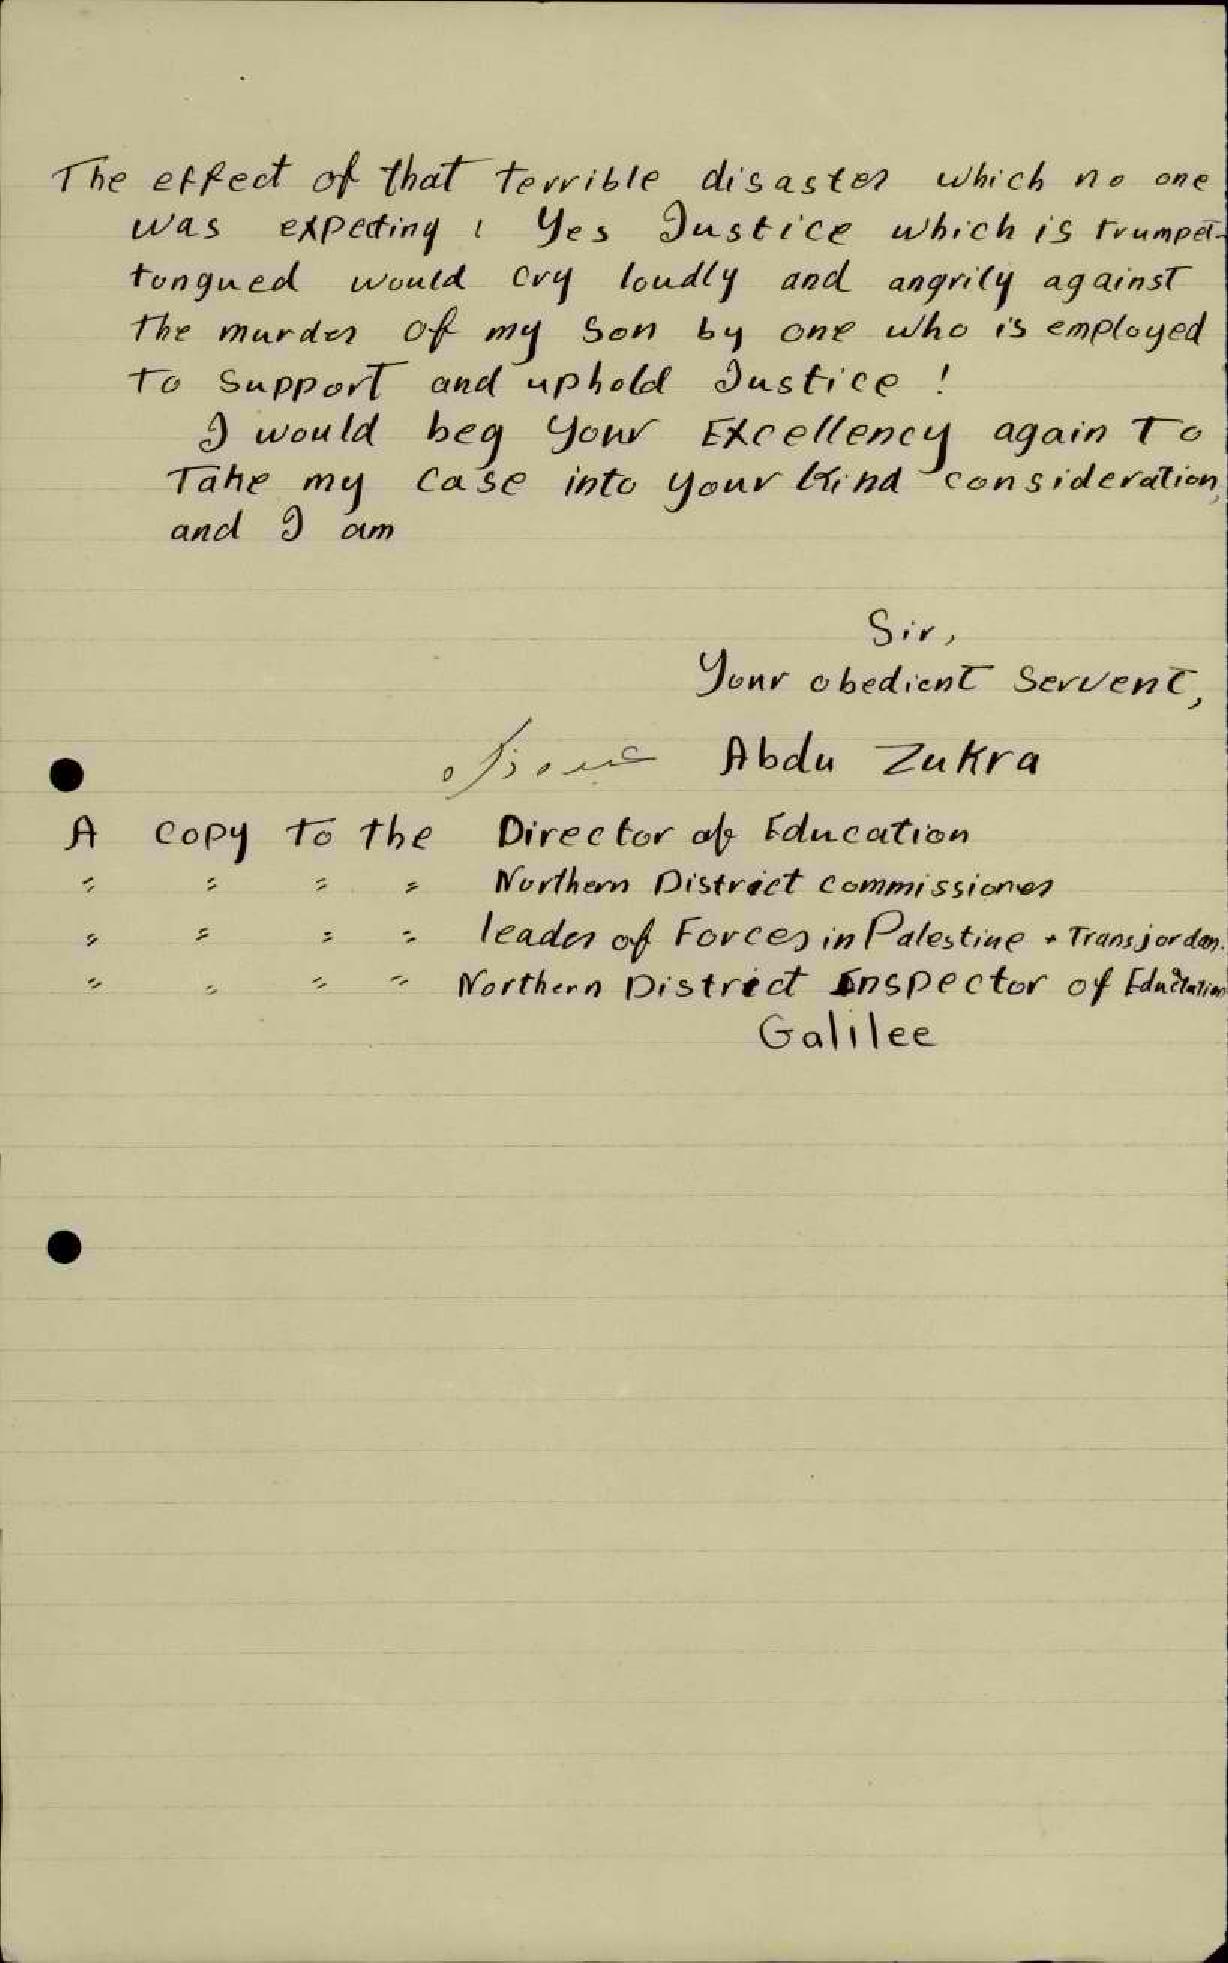 The effect of that terrible disaster which no one
was expecting ! Yes Justice which is trumpet-
tongued would cry loudly and angrily against
the murder of my son by one who is employed
to support and uphold Justice !
I would beg your Excellency again to
take my case into your kind consideration,
and I am
Sir,
Your obedient Servent,
عبده زكره Abdu Zukra
A copy to the Director of Education
" " " " Northern District commissioner
" " " " leader of Forces in Palestine + Transjordan.
" " " " Northern District Inspector of Education
Galilee